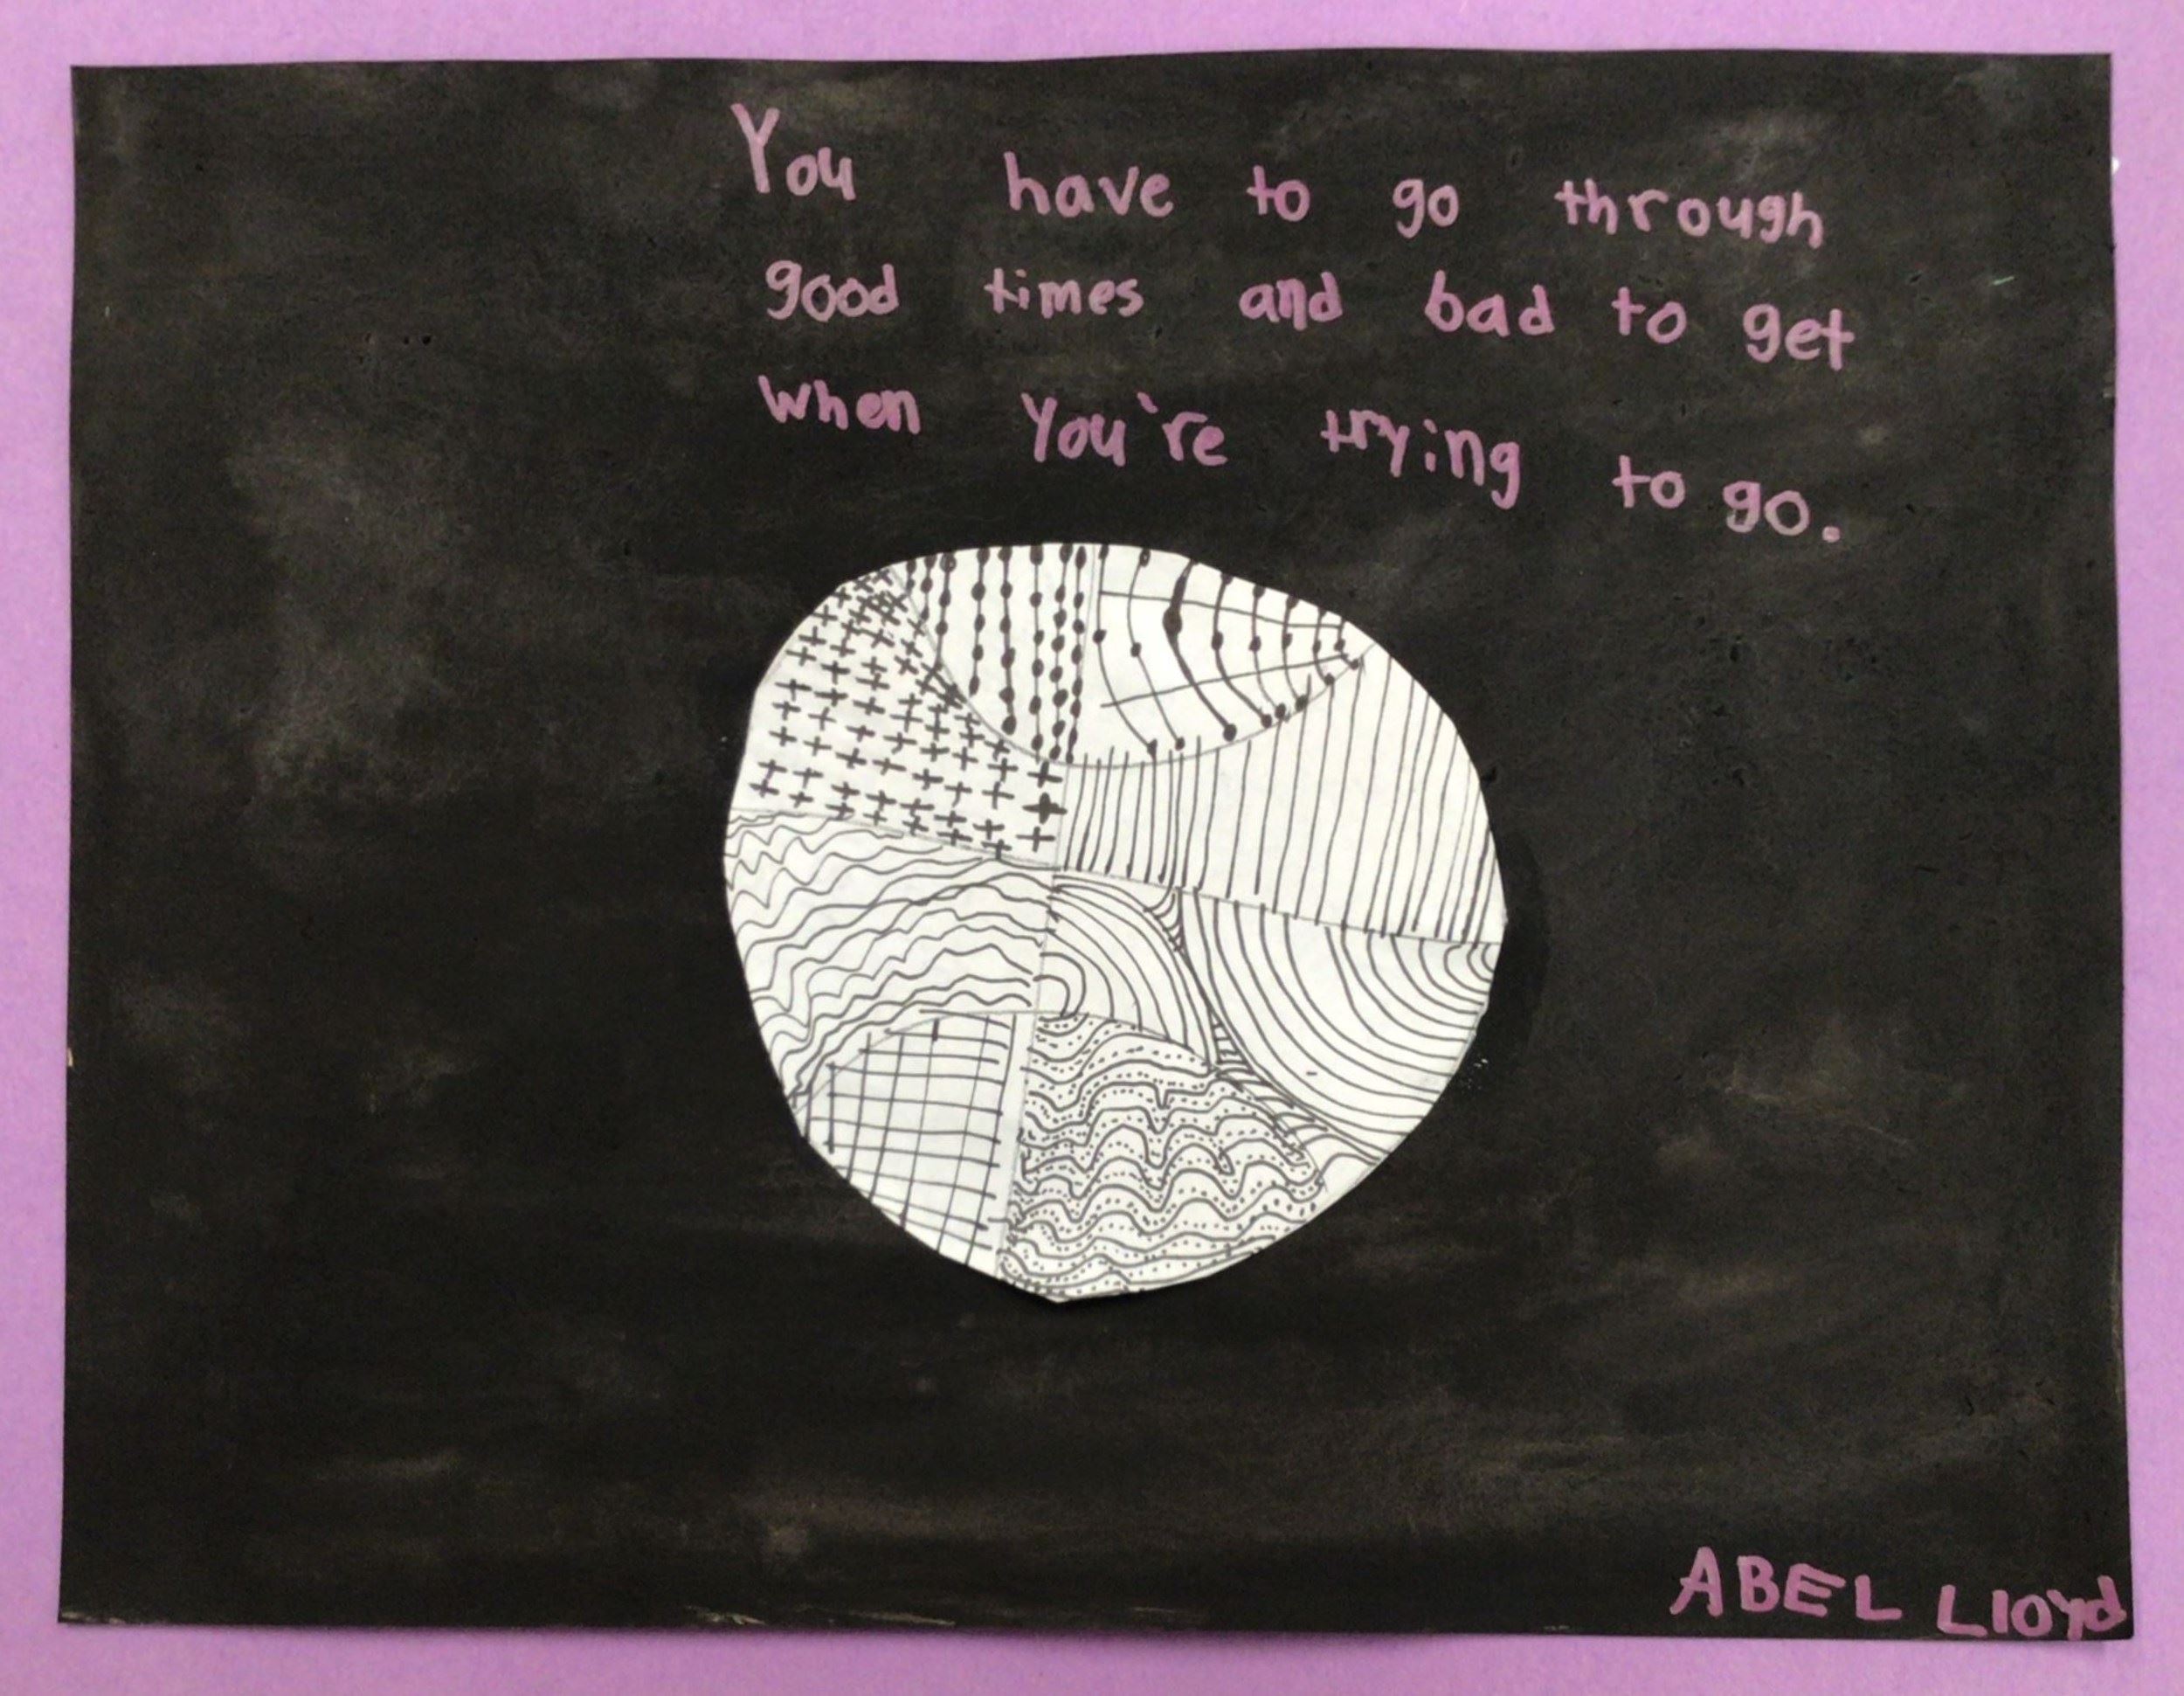 You have to go through
good times and bad to get
when you're trying to go.
ABEL LLOYd